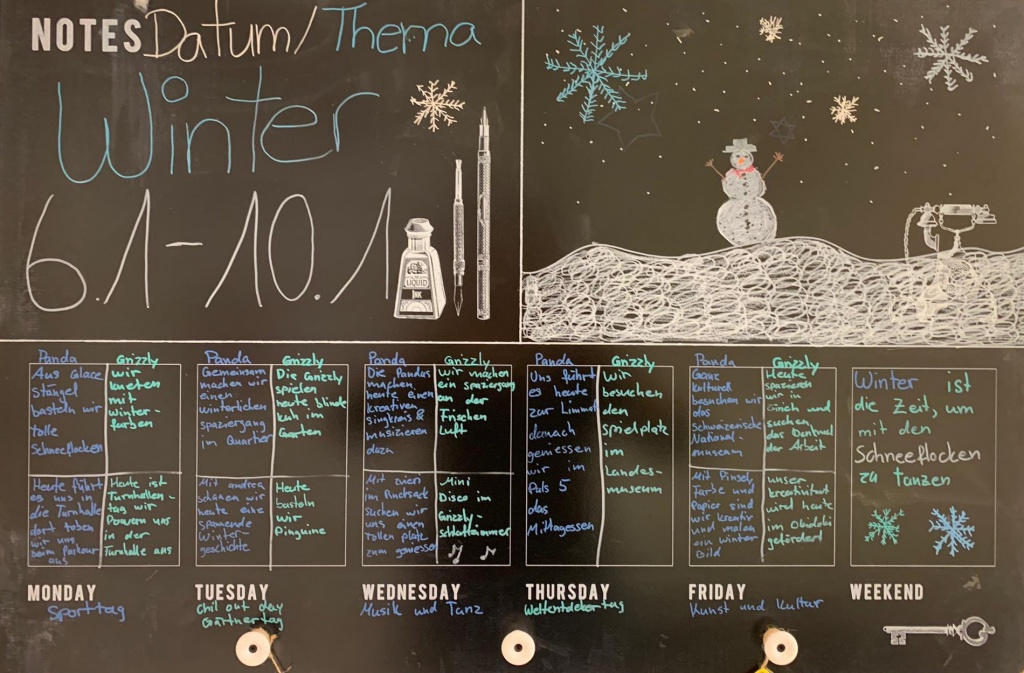 NOTES Datum/Thema
Winter
6.1-10.1
LIQUID
INK
Panda
Aus Glace
stängel
basteln wir
tolle
Schneeflocken
Heute führt
es uns in
die Turnhalle
dort toben
wir uns
beim Parkour
aus
Grizzly
wir
kneten
mit
winter-
farben
Heute ist
Turnhallen-
tag wir
Powern uns
in der
Turnhalle aus
MONDAY
Sporttag
Panda
Gemeinsam
machen wir
einen
winterlichen
spaziergang
im Quartier
Mit andrea
schauen wir
heute eine
spannende
Winter-
geschichte
Grizzly
Die Grizzly
spielen
heute blinde
kuh im
Garten
Heute
basteln
wir
Pinguine
TUESDAY
Chil out day
Gärtnertag
Panda
Die Pandas
machen
heute einen
kreativen
singkreis &
musizieren
dazu
Mit
im Rucksack
suchen wir
uns einen
tollen platz
zum geniessen
Grizzly
wir machen
ein spaziergang
an der
Frischen
Luft
Mini
Disco im
Grizzly-
schlafzimmer
WEDNESDAY
Musik und Tanz
Panda
Uns führt
es heute
zur Limmat
danach
geniessen
wir im
Puls 5
das
Mittagessen
Grizzly
wir
besuchen
den
spielplatz
im
Landes-
museum
THURSDAY
Weltentdeckertag
Panda
Ganz
kulturell
besuchen wir
das
schweizerische
National-
museum
Mit Pinsel,
Farbe und
Papier sind
wir kreativ
und malen
ein Winter
Bild
Grizzly
Heute
spazieren
wir in
Zürich und
suchen
das Denkmal
der Arbeit
unser
kreativität
wird heute
im
gefördert
FRIDAY
Kunst und Kultur
Winter ist
die Zeit, um
mit den
Schneeflocken
zu tanzen
WEEKEND